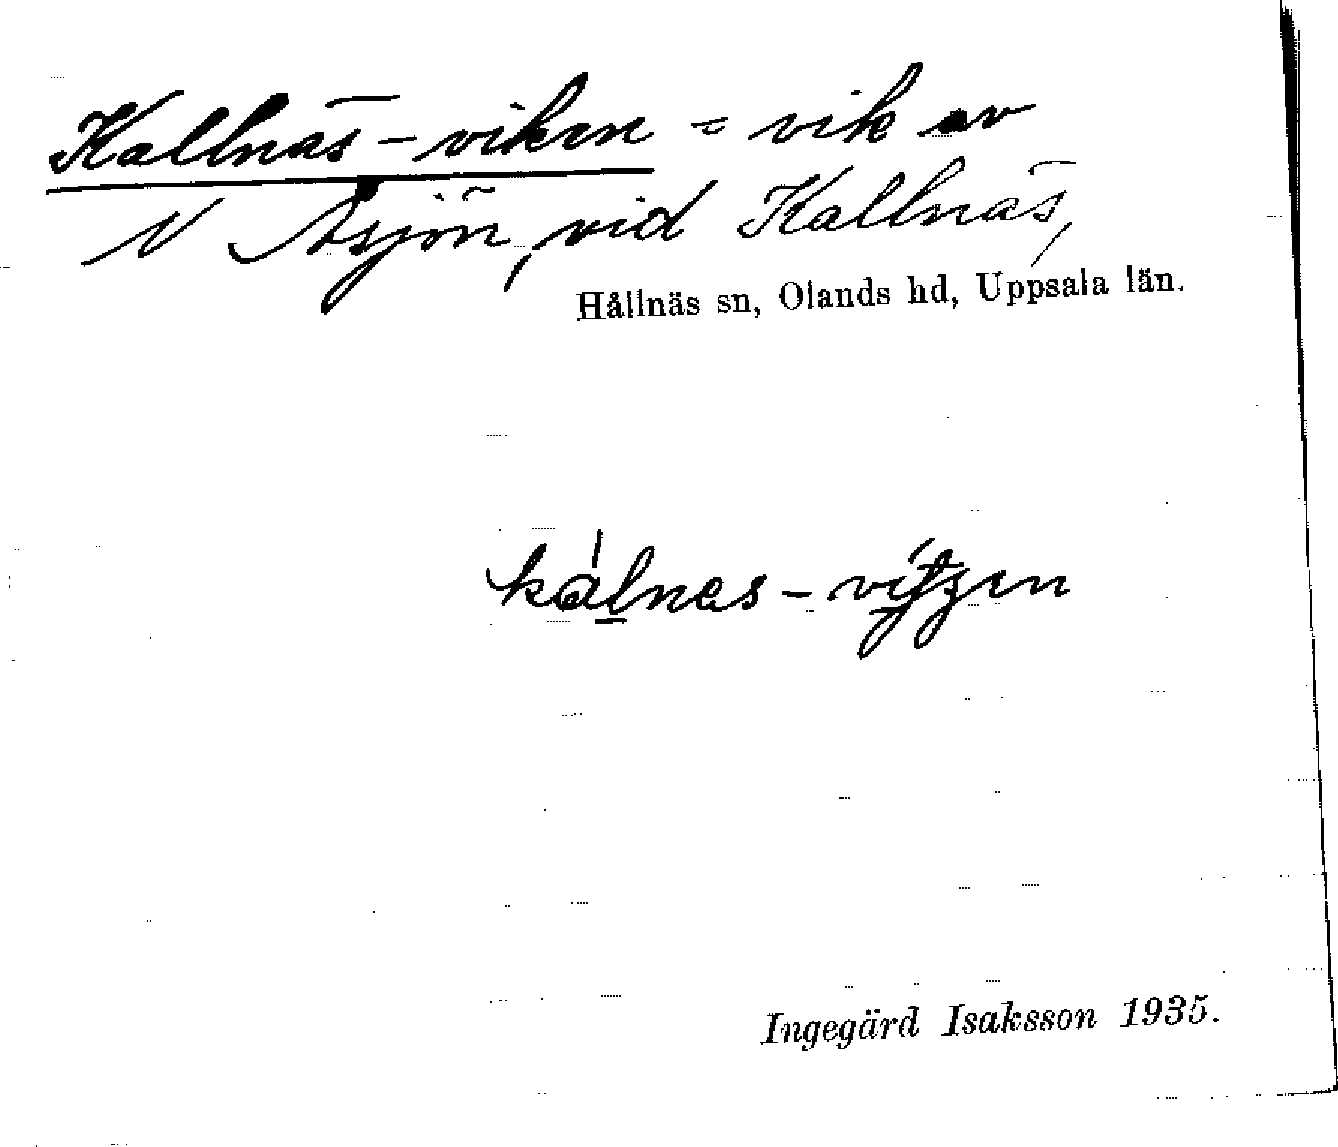 Kallnäs-viken = vik av
N Åsjön, vid Kallnäs,
Hållnäs sn, Olands hd, Uppsala län.
kálnes-vítzen
Ingegärd Isaksson 1935.